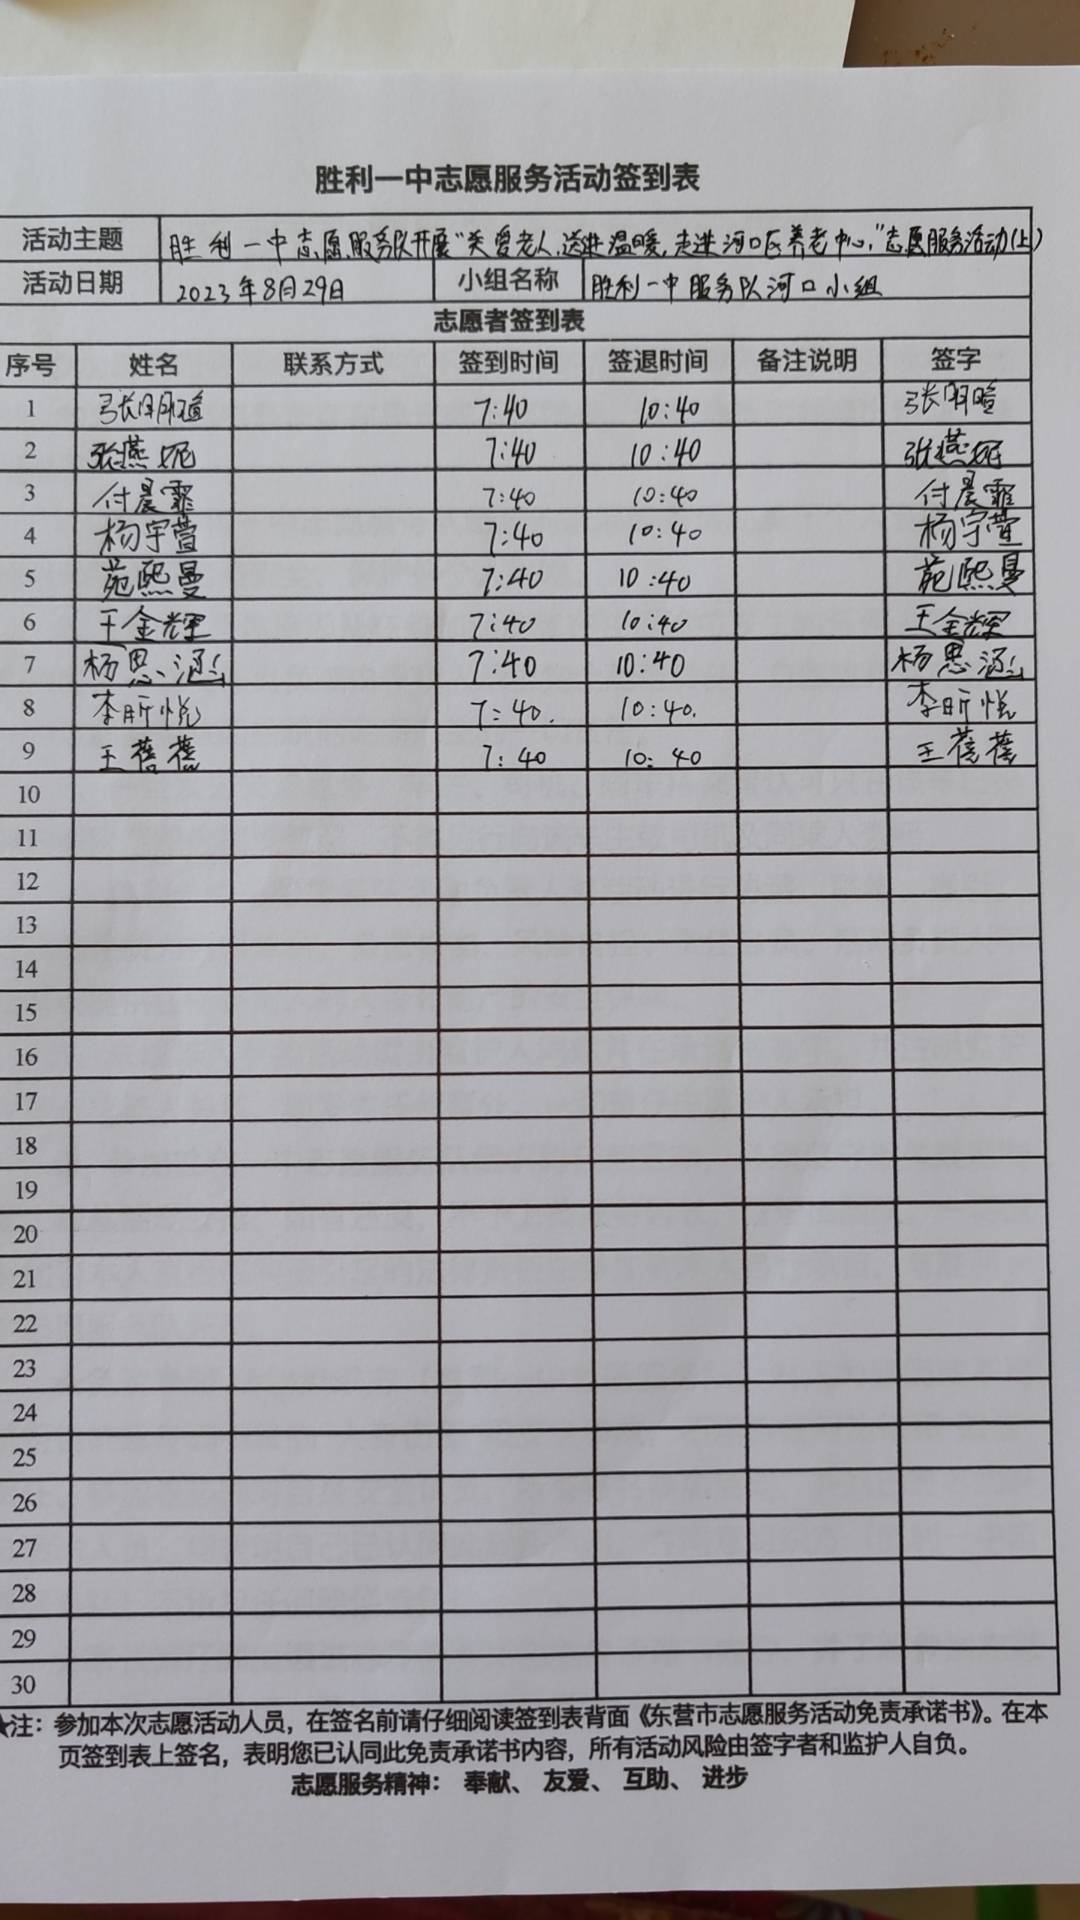 胜利一中志愿服务活动签到表
活动主题 胜利一中志愿服务队开展“关爱老人,送进温暖,走进河口区养老中心,”志愿服务活动(上)
活动日期 2023年8月29日 小组名称 胜利一中服务队河口小组
志愿者签到表
序号 姓名 联系方式 签到时间 签退时间 备注说明 签字
1 张明瑄 7:40 10:40 张明暄
2 张燕妮 7:40 10:40 张燕妮
3 付晨霏 7:40 10:40 付晨霏
4 杨宇萱 7:40 10:40 杨宇萱
5 苑熙曼 7:40 10:40 苑熙曼
6 王金辉 7:40 10:40 王金辉
7 杨思涵 7:40 10:40 杨思涵
8 李昕悦 7:40. 10:40. 李昕悦
9 王蓓蓓 7:40 10:40 王蓓蓓
10
11
12
13
14
15
16
17
18
19
20
21
22
23
24
25
26
27
28
29
30
★注：参加本次志愿活动人员，在签名前请仔细阅读签到表背面《东营市志愿服务活动免责承诺书》。在本
页签到表上签名，表明您已认同此免责承诺书内容，所有活动风险由签字者和监护人自负。
志愿服务精神： 奉献、 友爱、 互助、 进步